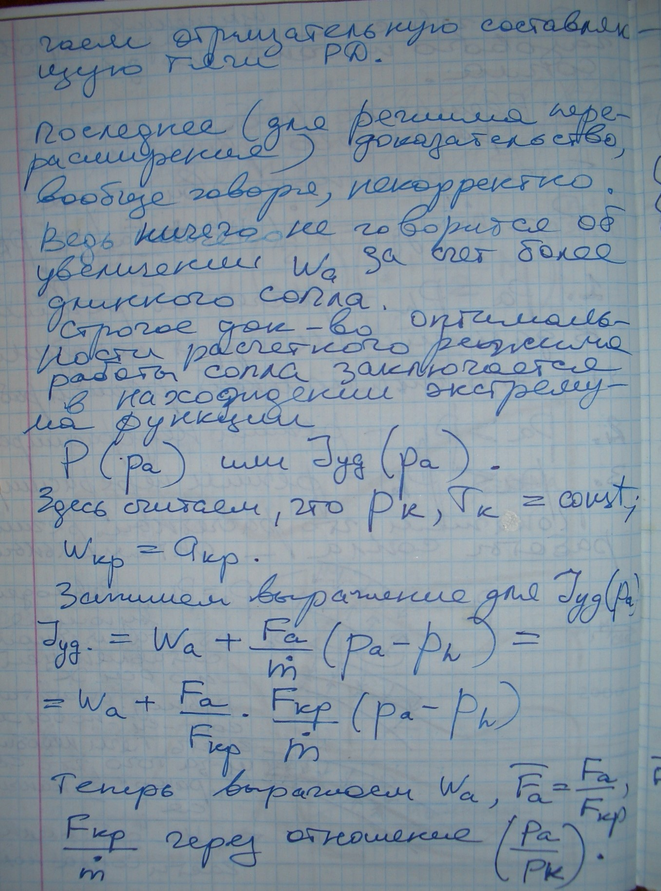 чаем отрицательную составляю-
щую тяги РД.
Последнее (для режима пере-
расширения) доказательство,
вообще говоря, некорректно.
Ведь ничего не говорится об
увеличении Wa за счет более
длинного сопла.
Строгое док-во оптималь-
ности расчетного режима
работы сопла заключается
в нахождении экстрему-
ма функции
P(pa) или Jуд(pa).
Здесь считаем, что pк, Tк = const;
Wкр = aкр.
Запишем выражение для Jуд(pa)
Jуд. = Wa + Fa/ṁ (pa - ph) =
= Wa + Fa/Fкр · Fкр/ṁ (pa - ph)
Теперь выражаем Wa, F̄a = Fa/Fкр,
Fкр/ṁ через отношение (pa/pк).